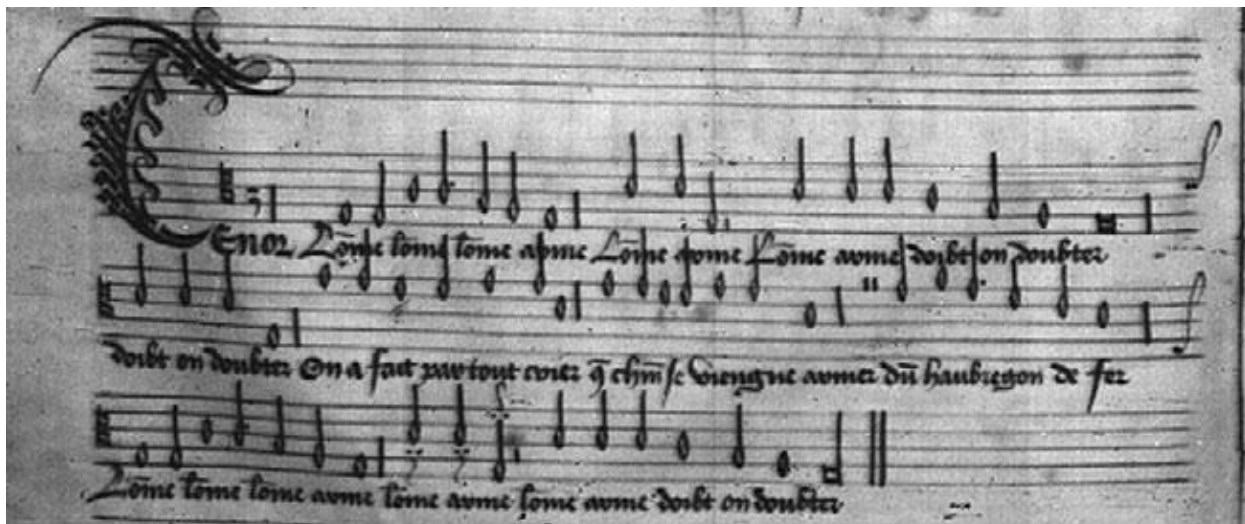 Tenor Lo̅me lo̅me lo̅me arme Lo̅me arme Lo̅me arme doibt on doubter
doibt on doubter On a fait partout crier q̅ ch̅m se viengne armer du̅ haubregon de fer
Lo̅me lo̅me lo̅me arme lo̅me arme lo̅me arme doibt on doubter